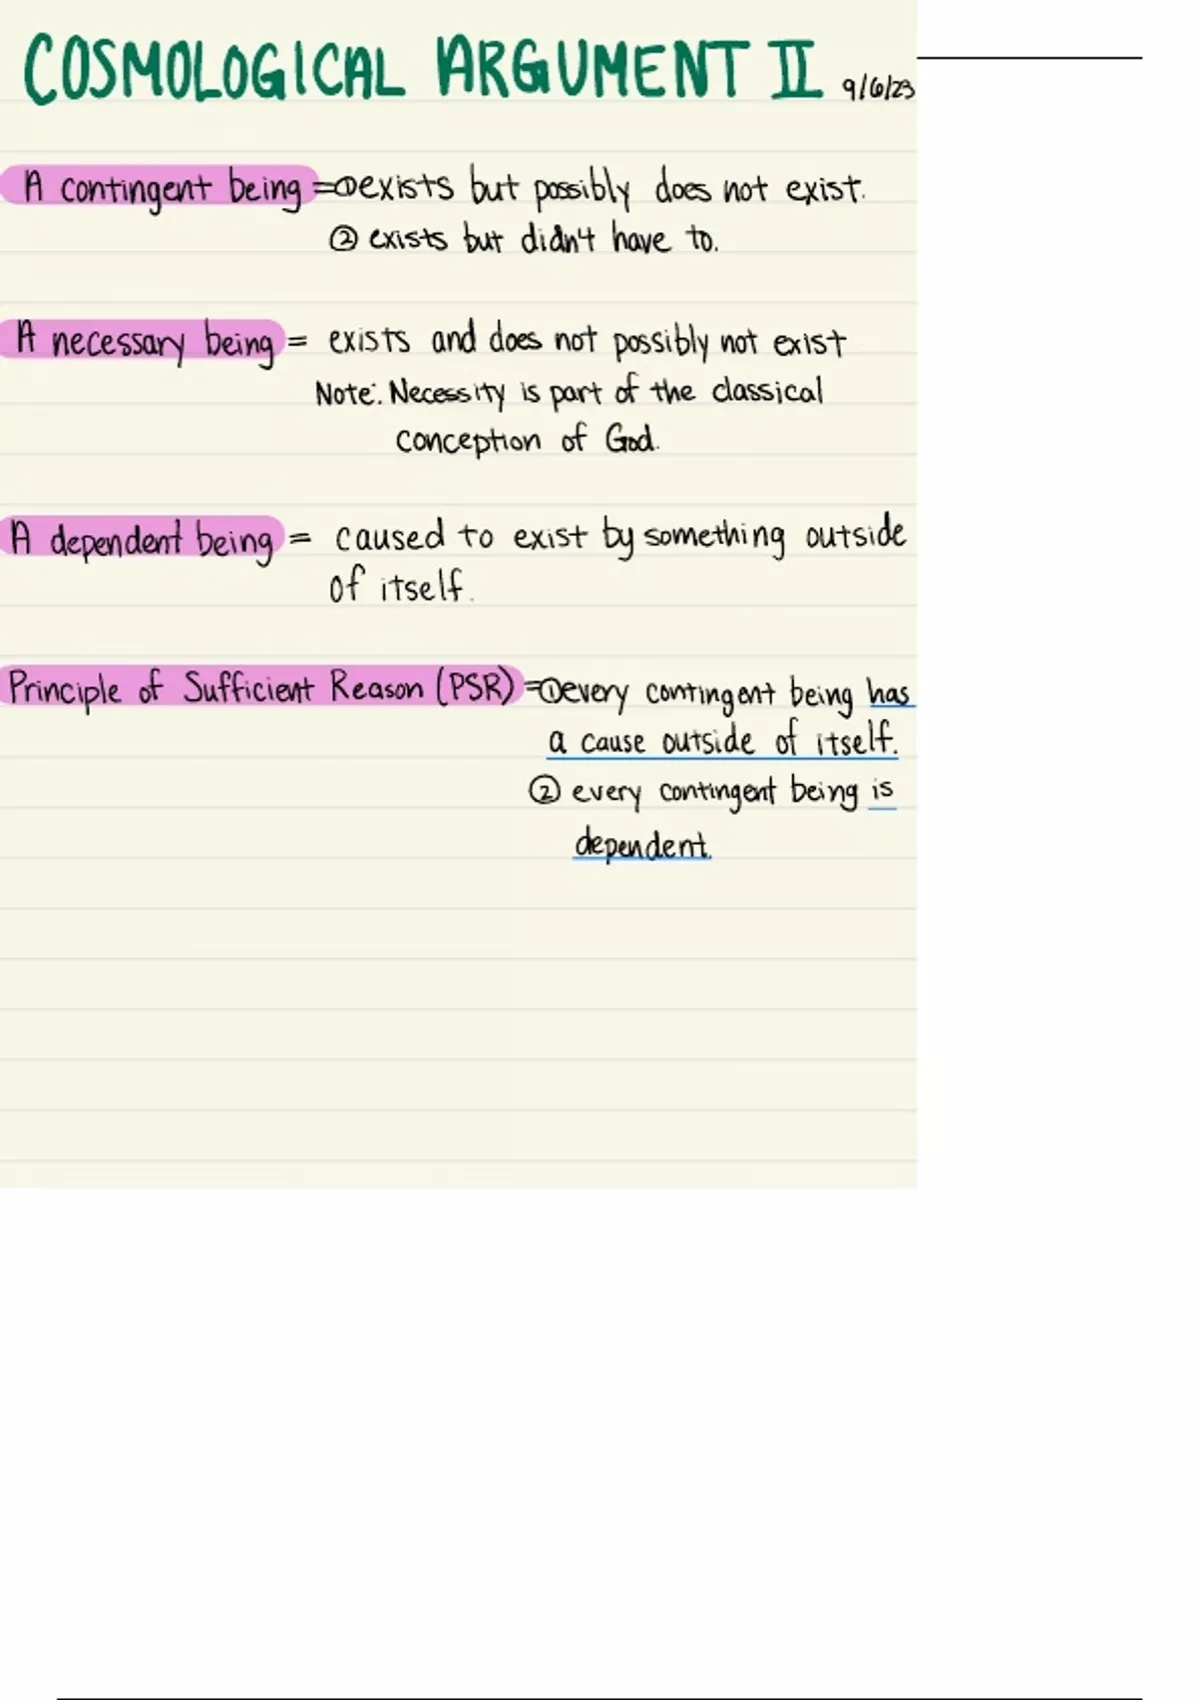 COSMOLOGICAL ARGUMENT II 9/6/23
A contingent being = ① exists but possibly does not exist.
② exists but didn't have to.
A necessary being = exists and does not possibly not exist
Note: Necessity is part of the classical
conception of God.
A dependent being = caused to exist by something outside
of itself.
Principle of Sufficient Reason (PSR) = ① every contingent being has
a cause outside of itself.
② every contingent being is
dependent.